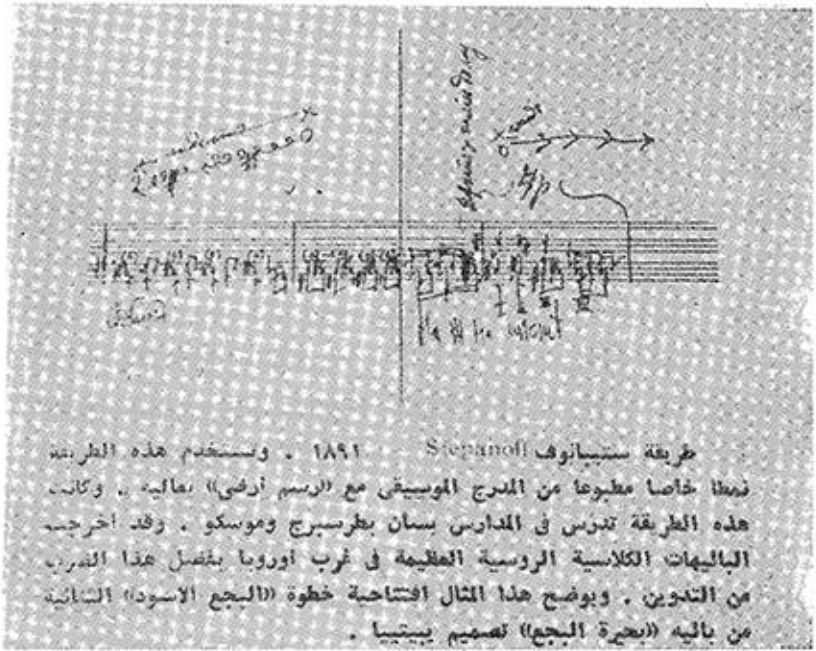 طريقة ستيبانوف Stepanoff ١٨٩١ . وتستخدم هذه الطريقة
نمطا خاصا مطبوعا من المدرج الموسيقى مع «رسم أرضى» بعاليه .. وكانت
هذه الطريقة تدرس فى المدارس بسان بطرسبرج وموسكو . وقد اخرجت
الباليهات الكلاسية الروسية العظيمة فى غرب أوروبا بفضل هذا الضرب
من التدوين . ويوضح هذا المثال افتتاحية خطوة «البجع الاسود» الثنائية
من باليه «بحيرة البجع» تصميم بيتيبيا .